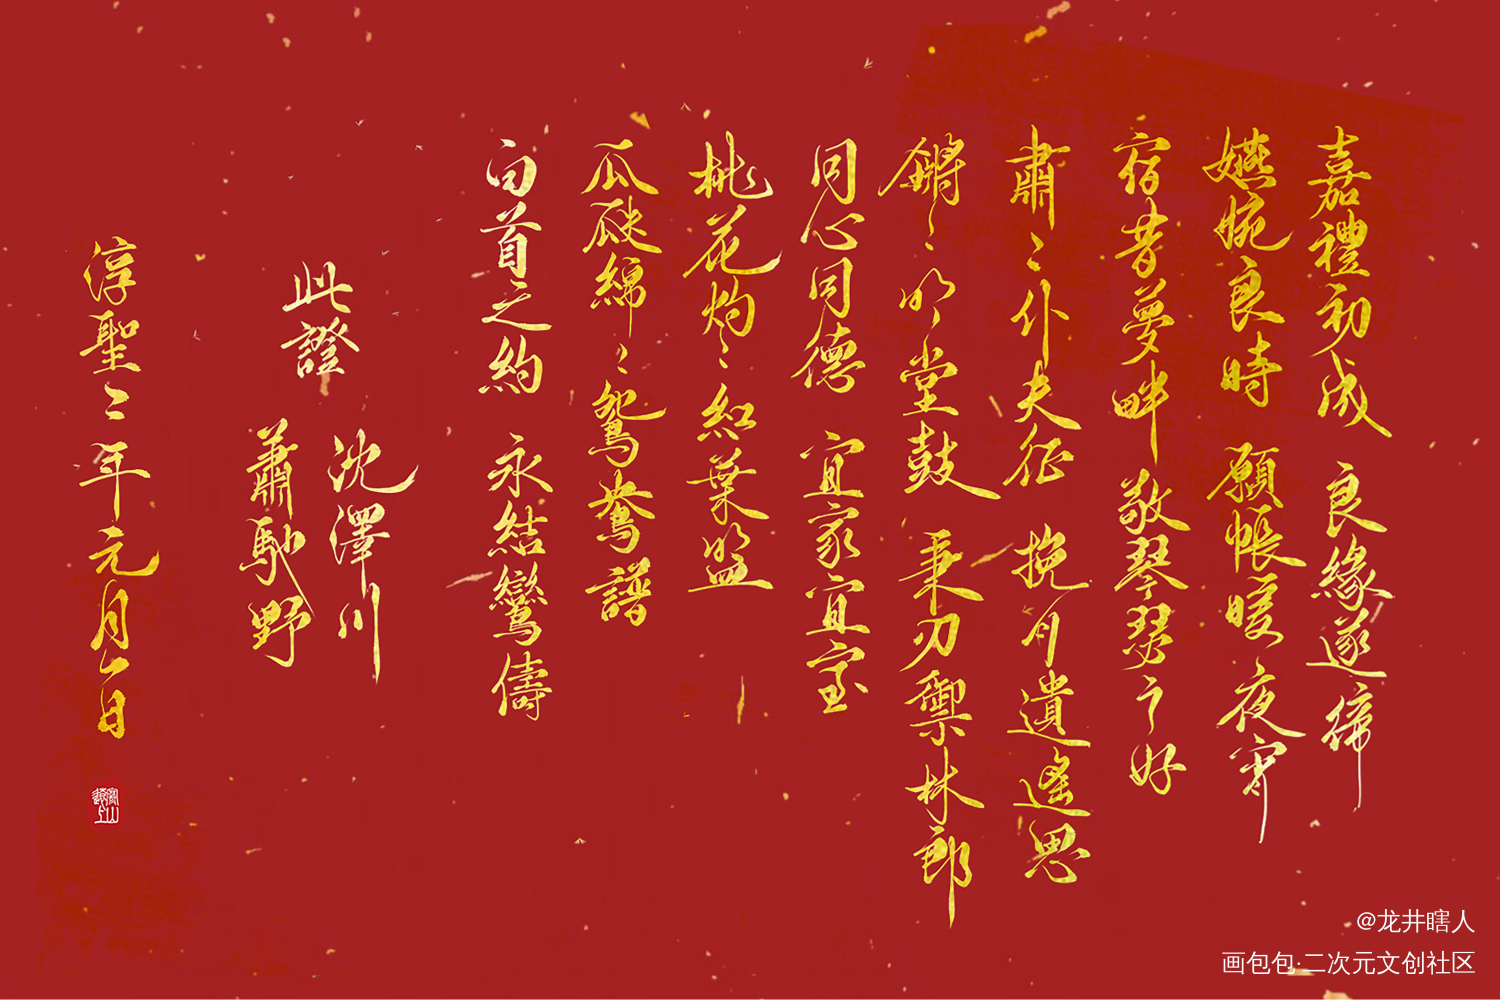 嘉禮初成 良緣遂締
嬿婉良時 願帳暖夜宵
宿昔夢畔 敬琴瑟之好
肅〻仆夫征 挽月遺遙思
鏘〻明堂鼓 秉刃禦林郎
同心同德 宜家宜室
桃花灼〻 紅葉盟
瓜瓞綿〻 鴛鴦譜
白首之約 永結鸞儔
此證
沈澤川
蕭馳野
淳聖二年元月一日
@龙井瞎人
画包包·二次元文创社区